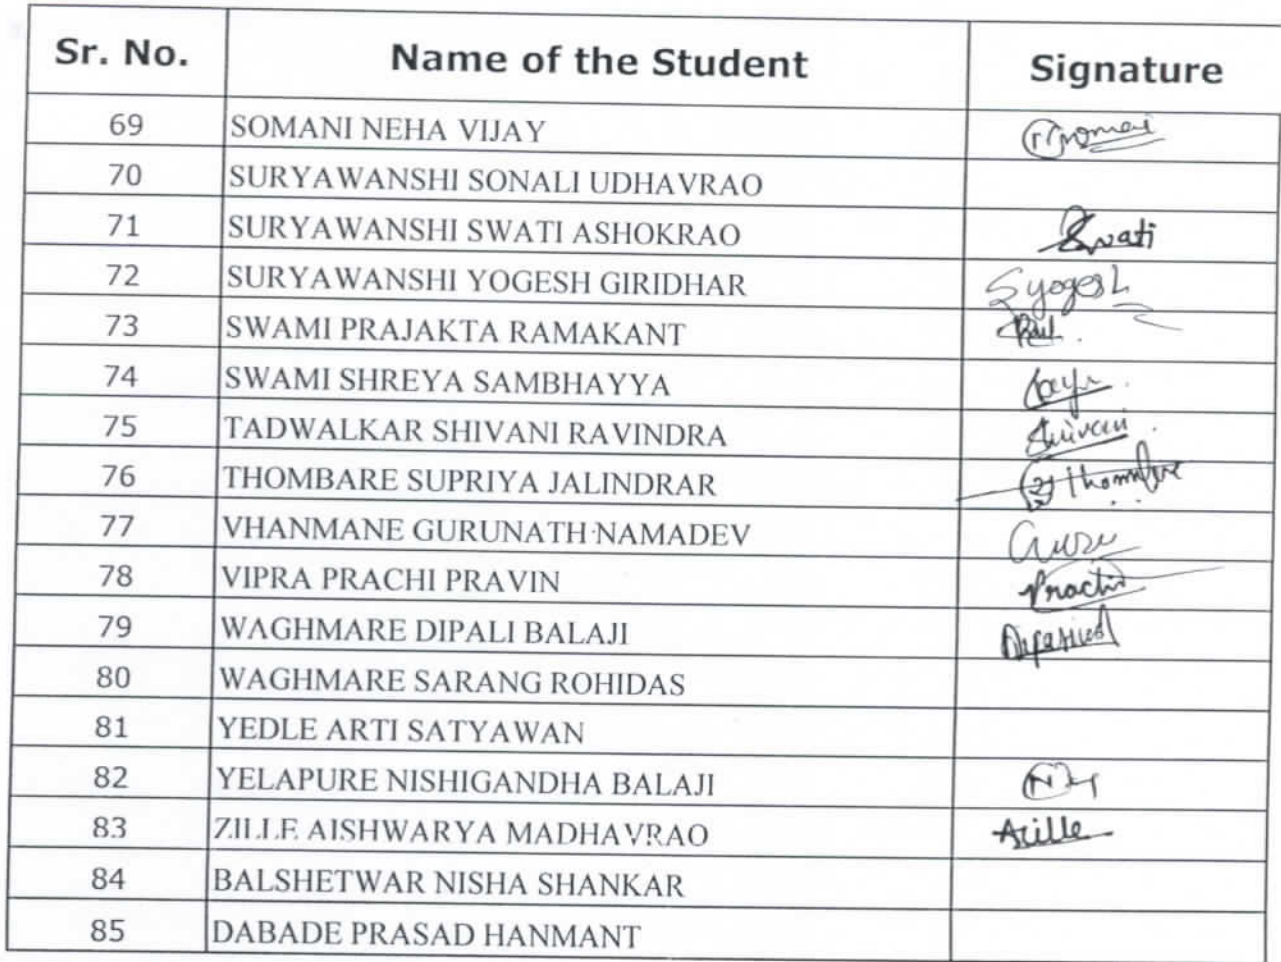 Sr. No. Name of the Student Signature
69 SOMANI NEHA VIJAY
70 SURYAWANSHI SONALI UDHAVRAO
71 SURYAWANSHI SWATI ASHOKRAO Swati
72 SURYAWANSHI YOGESH GIRIDHAR Syogesh
73 SWAMI PRAJAKTA RAMAKANT
74 SWAMI SHREYA SAMBHAYYA
75 TADWALKAR SHIVANI RAVINDRA Shivani
76 THOMBARE SUPRIYA JALINDRAR
77 VHANMANE GURUNATH NAMADEV Guru
78 VIPRA PRACHI PRAVIN Prachi
79 WAGHMARE DIPALI BALAJI
80 WAGHMARE SARANG ROHIDAS
81 YEDLE ARTI SATYAWAN
82 YELAPURE NISHIGANDHA BALAJI
83 ZILLE AISHWARYA MADHAVRAO Azille
84 BALSHETWAR NISHA SHANKAR
85 DABADE PRASAD HANMANT